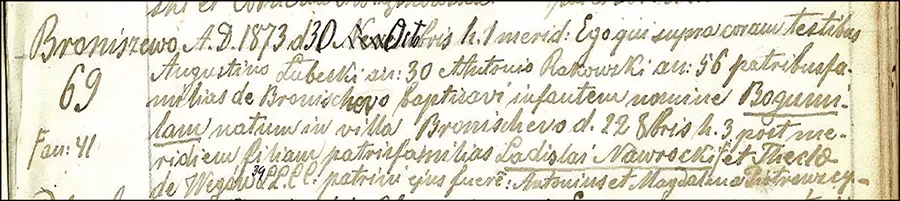 Broniszewo A.D. 1873 d 30 Octobris h. 1 merid: Ego qui supra coram testibus
69
Augustino Lubecki an: 30 Antonio Rakowski an: 56 patribusfa-
milias de Bronischevo baptisavi infantem nomine Bogumi-
lam natum in villa Bronischevo d. 22 8bris h. 3 post me-
Fan: 41
ridiem filiam patrisfamilias Ladislai Nawrocki et Theclæ
de LL. CC. patrini ejus fuere: Antonius et Magdalena